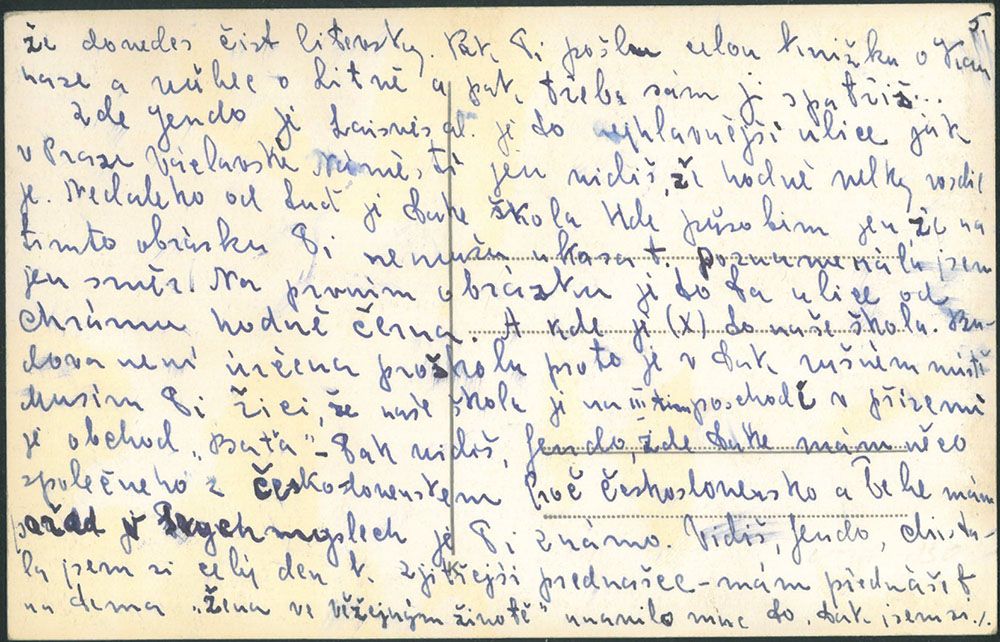 5.
že dovedeš číst litevsky. Pak Ti pošlu celou knížku o Kau
nase a vůbec o Litvě a pak, třeba sám ji spatříš...
Zde Jendo je Laisvės al. je to nejhlavnější ulice jak
v Praze Václavské Náměstí jen vidiš, že hodně velky rosdil
je. Nedaleko od tud je take škola kde působim jen že na
timto obrásku Ti nemužu ukasat. poznamenála jsem
jen směr. Na prvnim obrázku je to ta ulice od
chrámu hodně černa. A kde je (X) to naše škola. Bu-
dova neni určena pro školu proto je v tak rušném mistě
Musim Ti řici, že naše škola je na III tim poschodě v přizemi
je obchod „Baťa"- Tak vidiš, Jendo, zde take mám něco
společneho z Československem Proč Československo a Tebe mám
pořad v mych myslech je Ti známo. Vidiš, Jendo, chysta-
la jsem si celý den k zjitřejši prednašce - mám přednášet
na tema „Žena ve věřejným životě" unavilo mne to, tak jsem si ./.